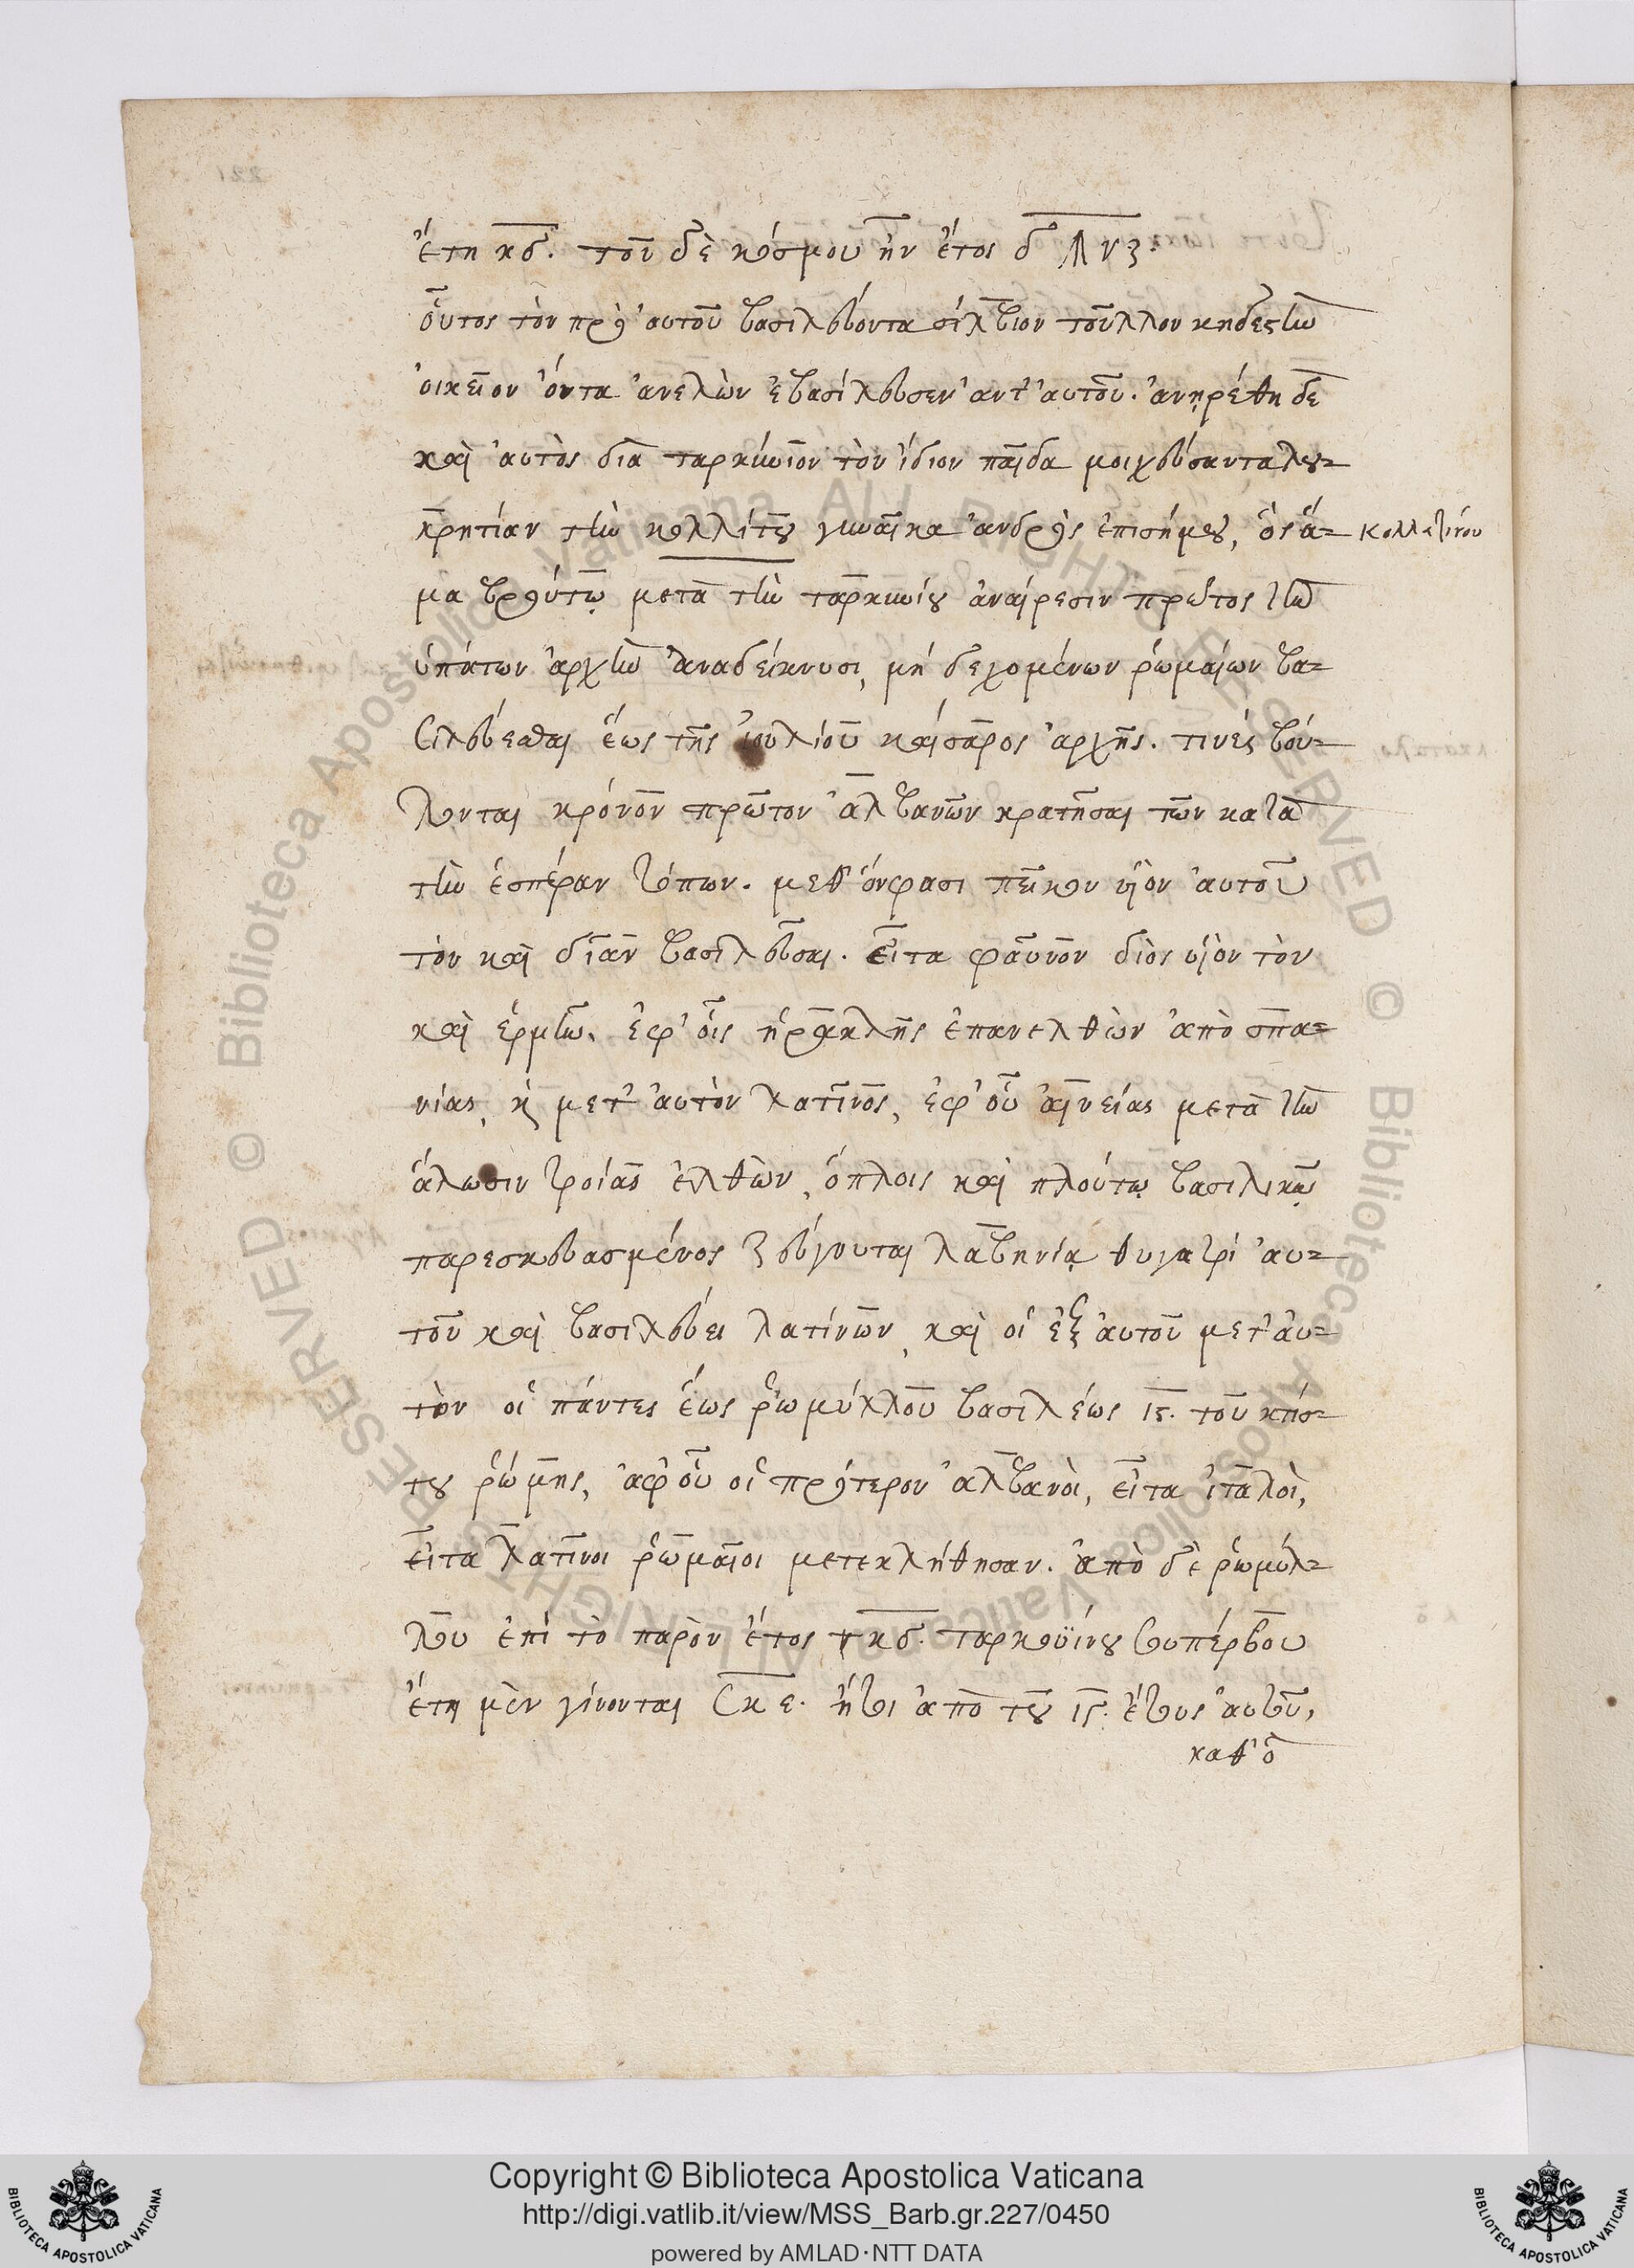 ἔτη κδ. τοῦ δὲ κόσμου ἦν ἔτος δϡνζ.
οὗτος τὸν πρὸ αὐτοῦ βασιλεύοντα σίλβιον τοῦλλον κηδεστὴν
οἰκεῖον ὄντα ἀνελὼν ἐβασίλευσεν ἀντ' αὐτοῦ. ἀνῃρέθη δὲ
καὶ αὐτὸς διὰ ταρκύνιον τὸν ἴδιον παῖδα μοιχεύσαντα λου-
κρητίαν τὴν κολλίτου γυναῖκα ἀνδρὸς ἐπισήμου, ὃς ἅ-
Κολλατίνου
μα βρούτῳ μετὰ τὴν ταρκυνίου ἀναίρεσιν πρῶτος τὴν
ὑπάτων ἀρχὴν ἀναδείκνυσι, μὴ δεχομένων ῥωμαίων βα-
σιλεύεσθαι ἕως τῆς ἰουλίου καίσαρος ἀρχῆς. τινὲς βού-
λονται κρόνον πρῶτον ἀλβανῶν κρατῆσαι τῶν κατὰ
τὴν ἑσπέραν τόπων. μεθ' ὅν φασι πεῖκον υἱὸν αὐτοῦ
τὸν καὶ δίαν βασιλεῦσαι. εἶτα φαῦνον διὸς υἱὸν τὸν
καὶ ἑρμῆν. ἐφ' οἷς ἡρακλῆς ἐπανελθὼν ἀπὸ σπα-
νίας, κ μετ' αὐτὸν λατῖνος, ἐφ' οὗ αἰνείας μετὰ τὴν
ἅλωσιν τροίας ἐλθὼν, ὅπλοις καὶ πλούτῳ βασιλικῷ
παρεσκευασμένος ζεύγνυται λαβηνίᾳ θυγατρὶ αὐ-
τοῦ καὶ βασιλεύει λατίνων, καὶ οἱ ἐξ αὐτοῦ μετ' αὐ-
τὸν οἱ πάντες ἕως ῥωμύλλου βασιλέως ις. τοῦ κτίσ-
του ῥώμης, ἀφ' οὗ οἱ πρότερον ἀλβανοὶ, εἶτα ἰταλοὶ,
εἶτα λατῖνοι ῥωμαῖοι μετεκλήθησαν. ἀπὸ δὲ ῥωμύλ-
λου ἐπὶ τὸ παρὸν ἔτος κδ. ταρκουΐνου σουπέρβου
ἔτη μὲν γίνονται σκε. ἤτοι ἀπὸ τοῦ ις. ἔτους αὐτοῦ,
καθ' ὃ